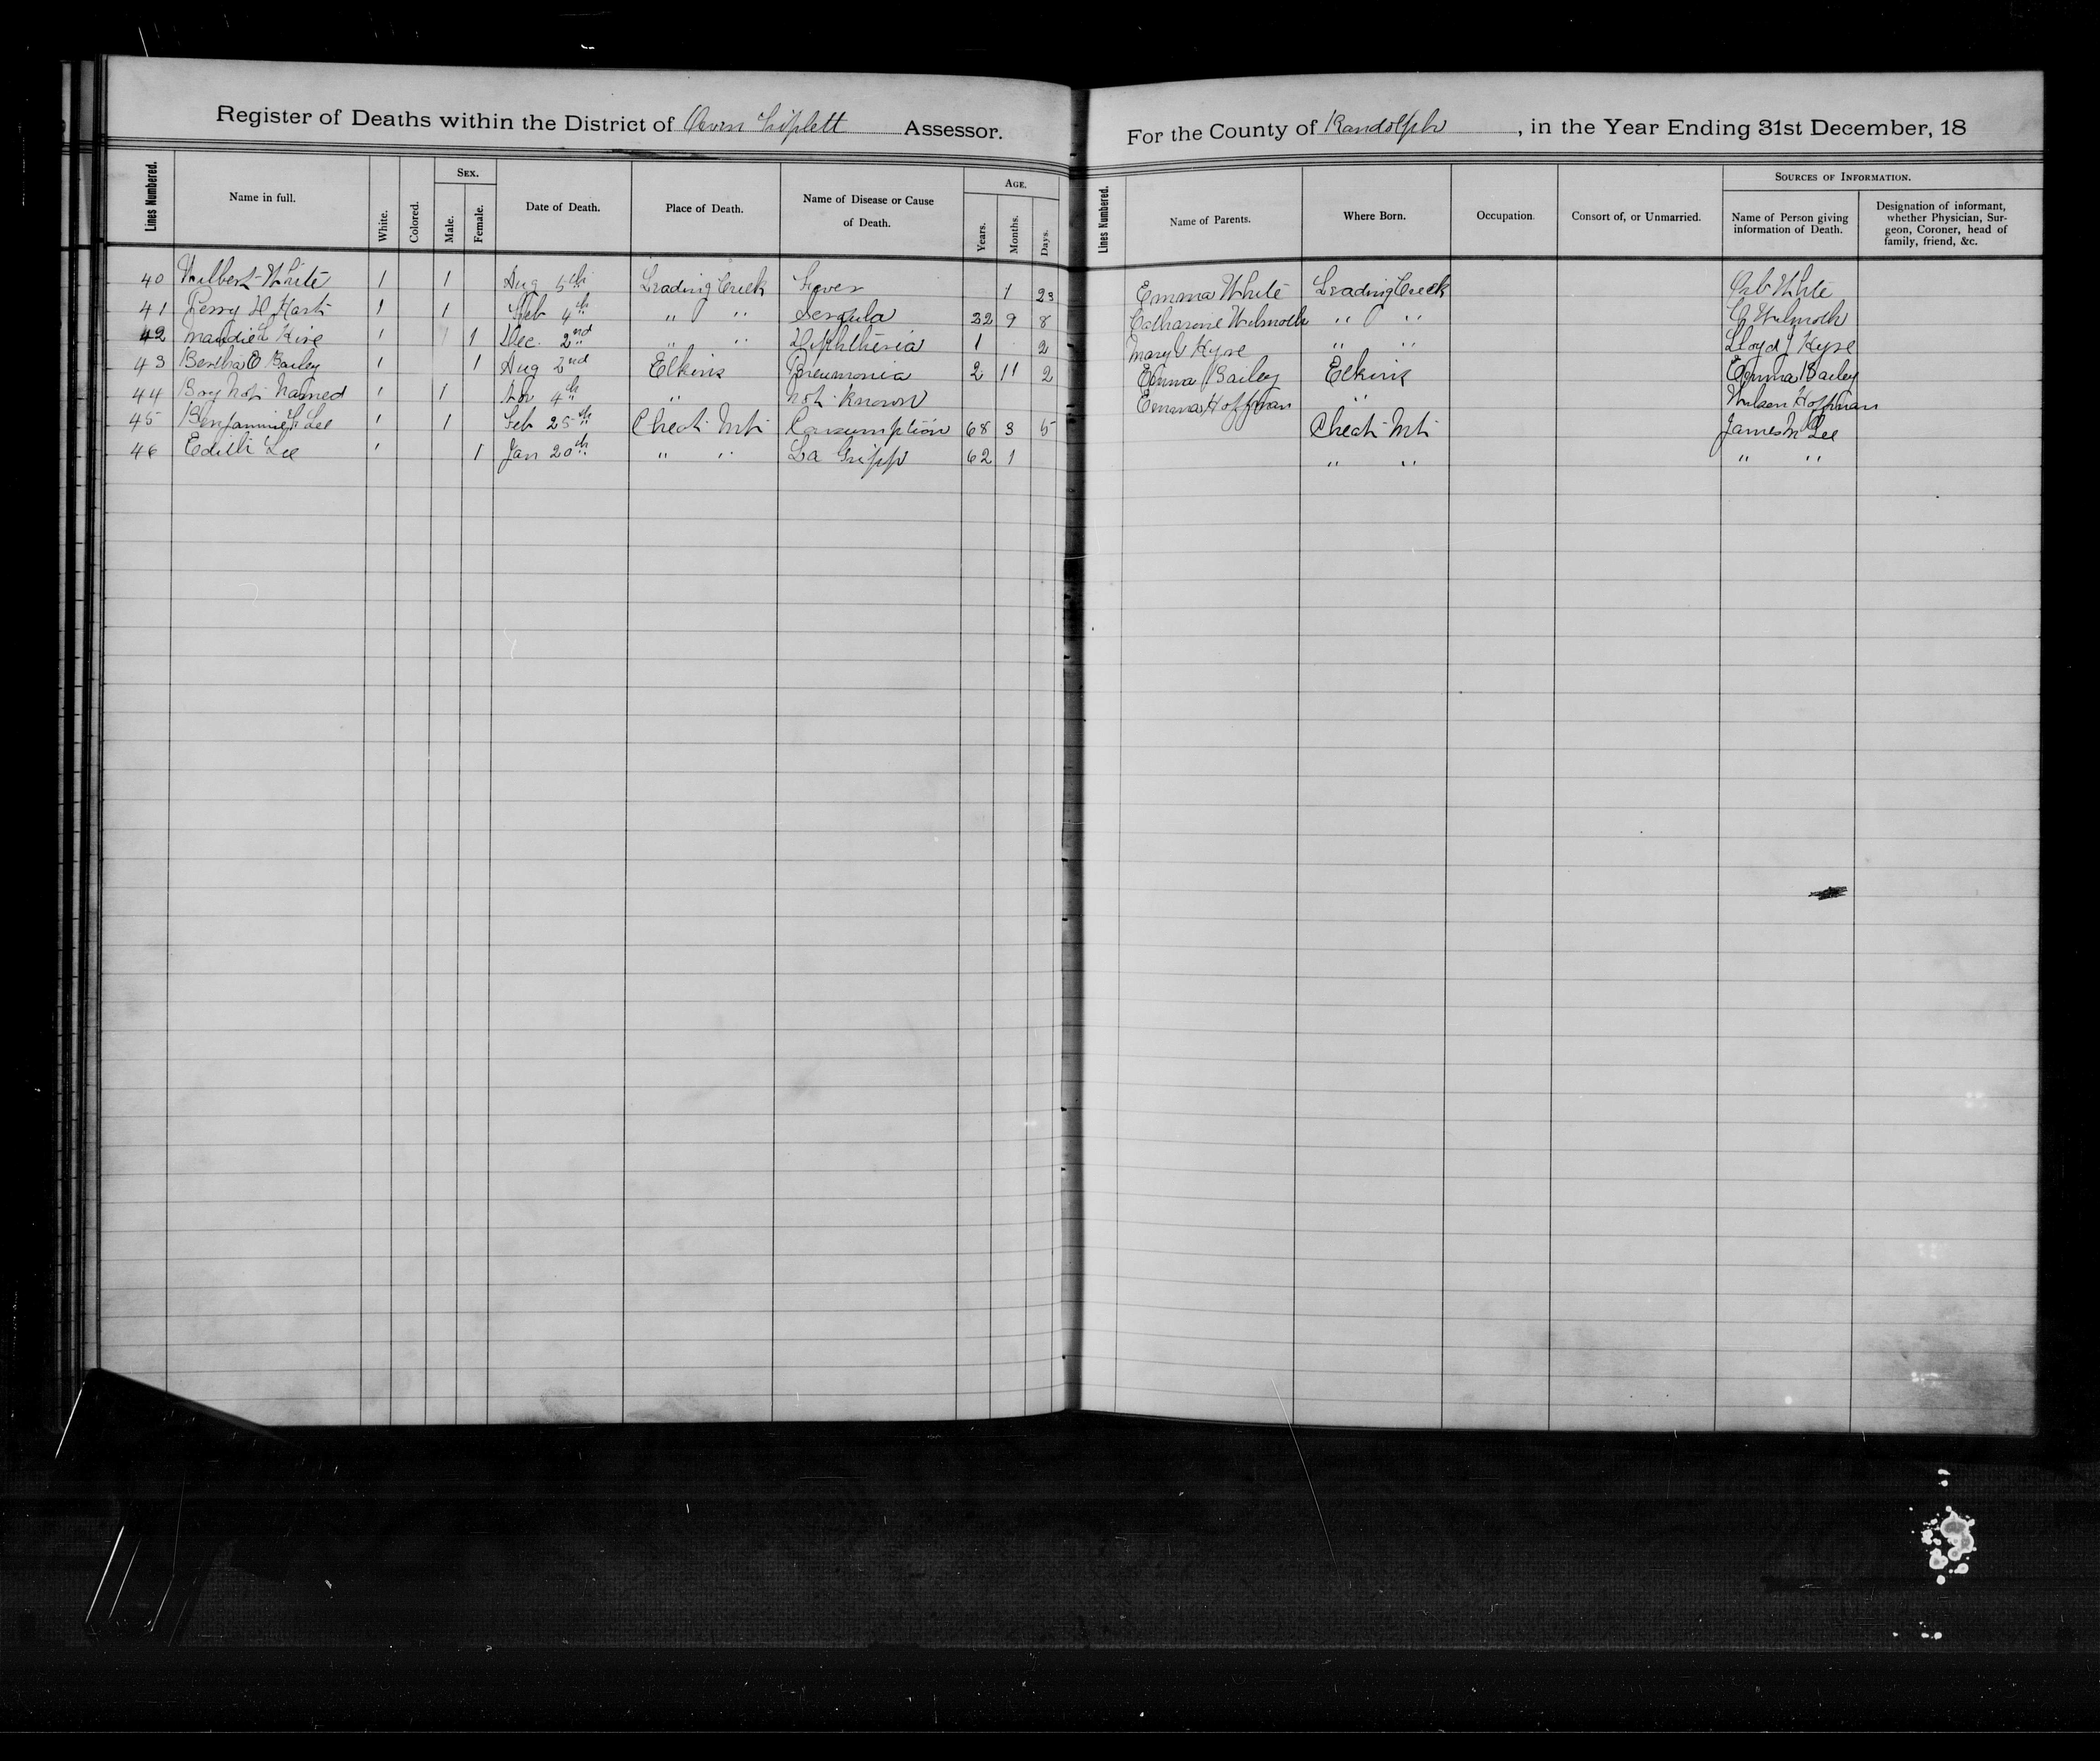 Register of Deaths within the District of Owen Triplett Assessor. For the County of Randolph, in the Year Ending 31st December, 18
Lines Numbered. Name in full. White. Colored. Sex. Male. Female. Date of Death. Place of Death. Name of Disease or Cause of Death. Age. Years. Months. Days. Lines Numbered. Name of Parents. Where Born. Occupation. Consort of, or Unmarried. Sources of Information. Name of Person giving information of Death. Designation of informant, whether Physician, Surgeon, Coroner, head of family, friend, &c.
40 Wilbert White 1 1 Aug 5th Leading Creek Fever 1 23 Emma White Leading Creek Orb White
41 Perry H Hart 1 1 Feb 4th " " 32 9 8 Catharine Wilmoth " " Wilmoth
42 Mandie L Kire 1 1 Dec. 2nd " " Diphtheria 1 2 Mary Kyre " " Lloyd J Kyre
43 Bertha O Bailey 1 1 Aug 2nd Elkins Pneumonia 2 11 2 Emma Bailey Elkins Emma Bailey
44 Boy Not Named 1 1 4th " Not Known Emma Hoffman " Wilson Hoffman
45 Benjamine Lee 1 1 Feb 25th Cheat Mt Consumption 68 3 5 Cheat Mt James M Lee
46 Edith Lee 1 1 Jan 20th " " La Gripp 62 1 " " " "